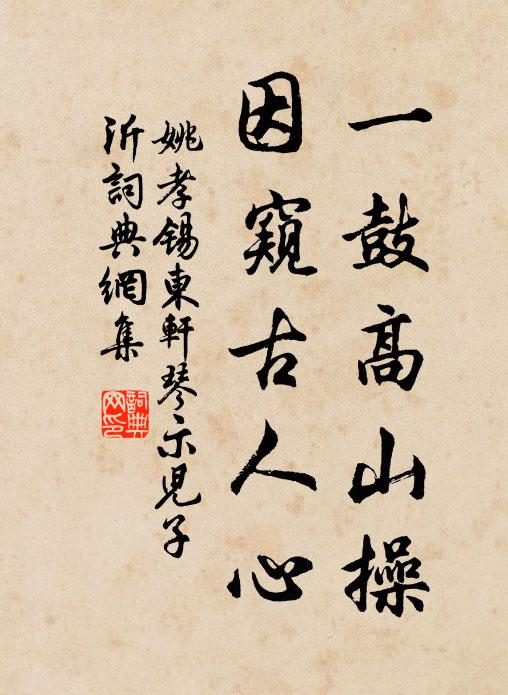 一鼓高山操
因窺古人心
姚孝锡東軒琴示兒子
沂詞典網集
詞典网印